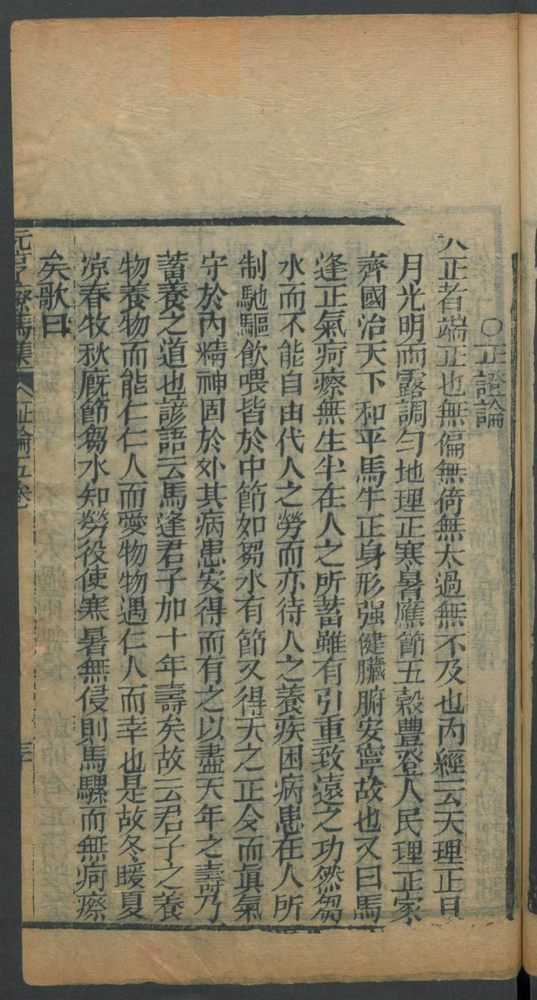 ○正證論
夫正者端正也無偏無倚無太過無不及也內經云天理正日
月光明雨露調勻地理正寒暑應節五穀豐登人民理正家
齊國治天下和平馬牛正身形强健臟腑安寧故也又曰馬
逢正氣疴瘵無生半在人之所蓄雖有引重致遠之功然芻
水而不能自由代人之勞而亦待人之養疾困病患在人所
制馳驅飲喂皆於中節如芻水有節又得天之正令而眞氣
守於內精神固於外其病患安得而有之以盡天年之壽乃
蓄養之道也諺語云馬逢君子加十年壽矣故云君子之養
物養物而能仁仁人而愛物物遇仁人而幸也是故冬暖夏
凉春牧秋廐節芻水知勞役使寒暑無侵則馬騾而無疴瘵
矣歌曰
元亨療馬集 證論五卷